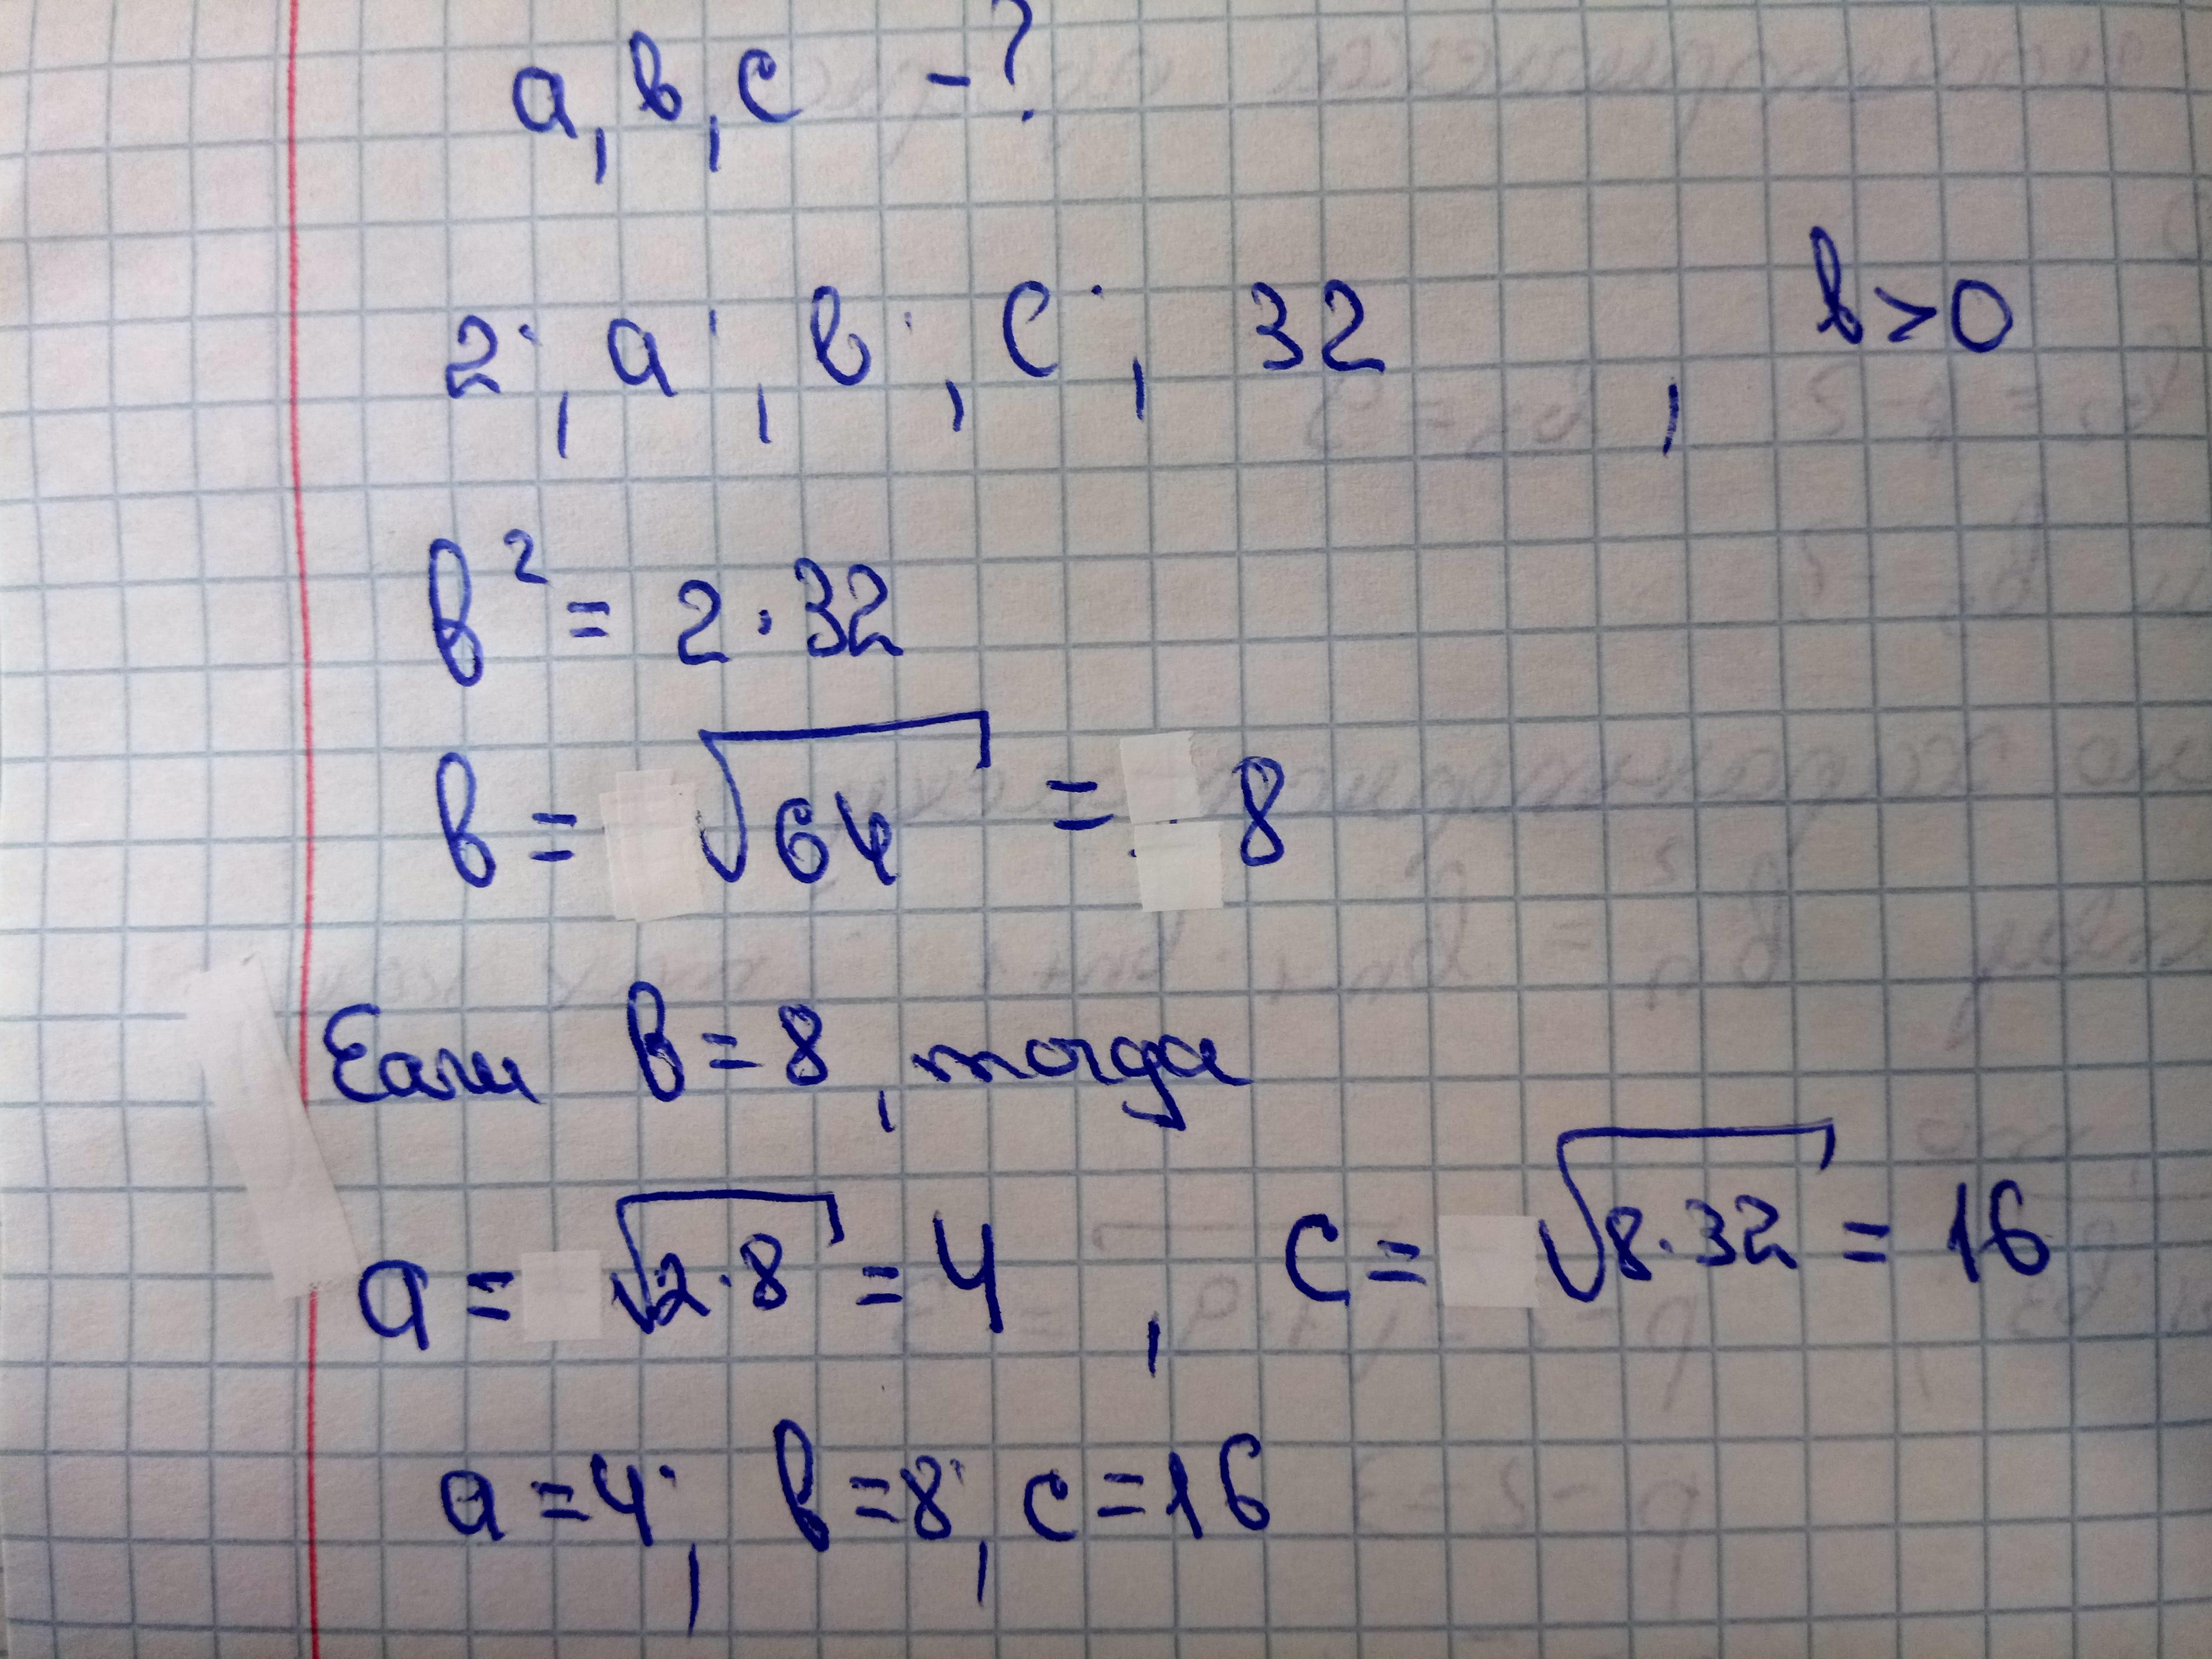 a, в, c -?
2, a, в, c, 32, в>0
в² = 2·32
в = √64 = 8
Если в=8, тогда
a = √2·8 = 4, c = √8·32 = 16
a=4, в=8, c=16